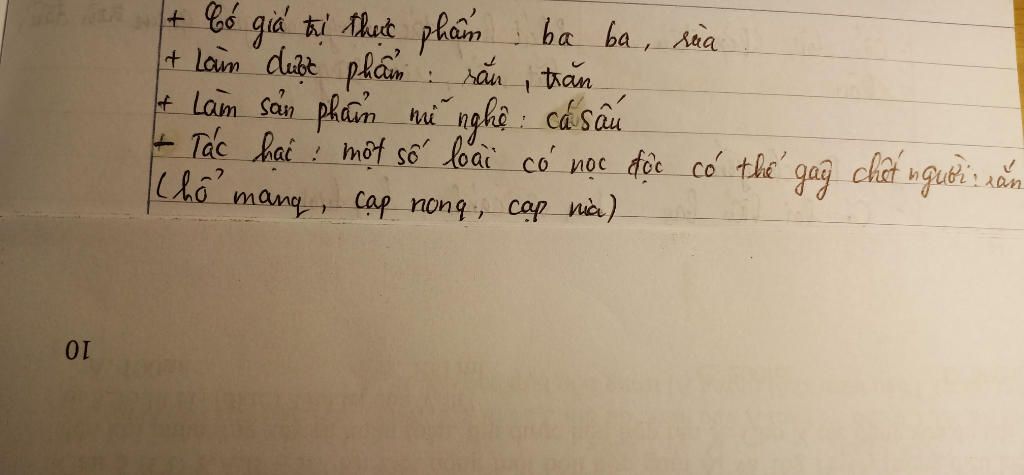 + Có giá trị thực phẩm : ba ba, rùa
+ Làm dược phẩm : rắn, trăn
+ Làm sản phẩm mĩ nghệ : cá sấu
+ Tác hại : một số loài có nọc độc có thể gây chết người : rắn
(hổ mang, cạp nong, cạp nia)
10